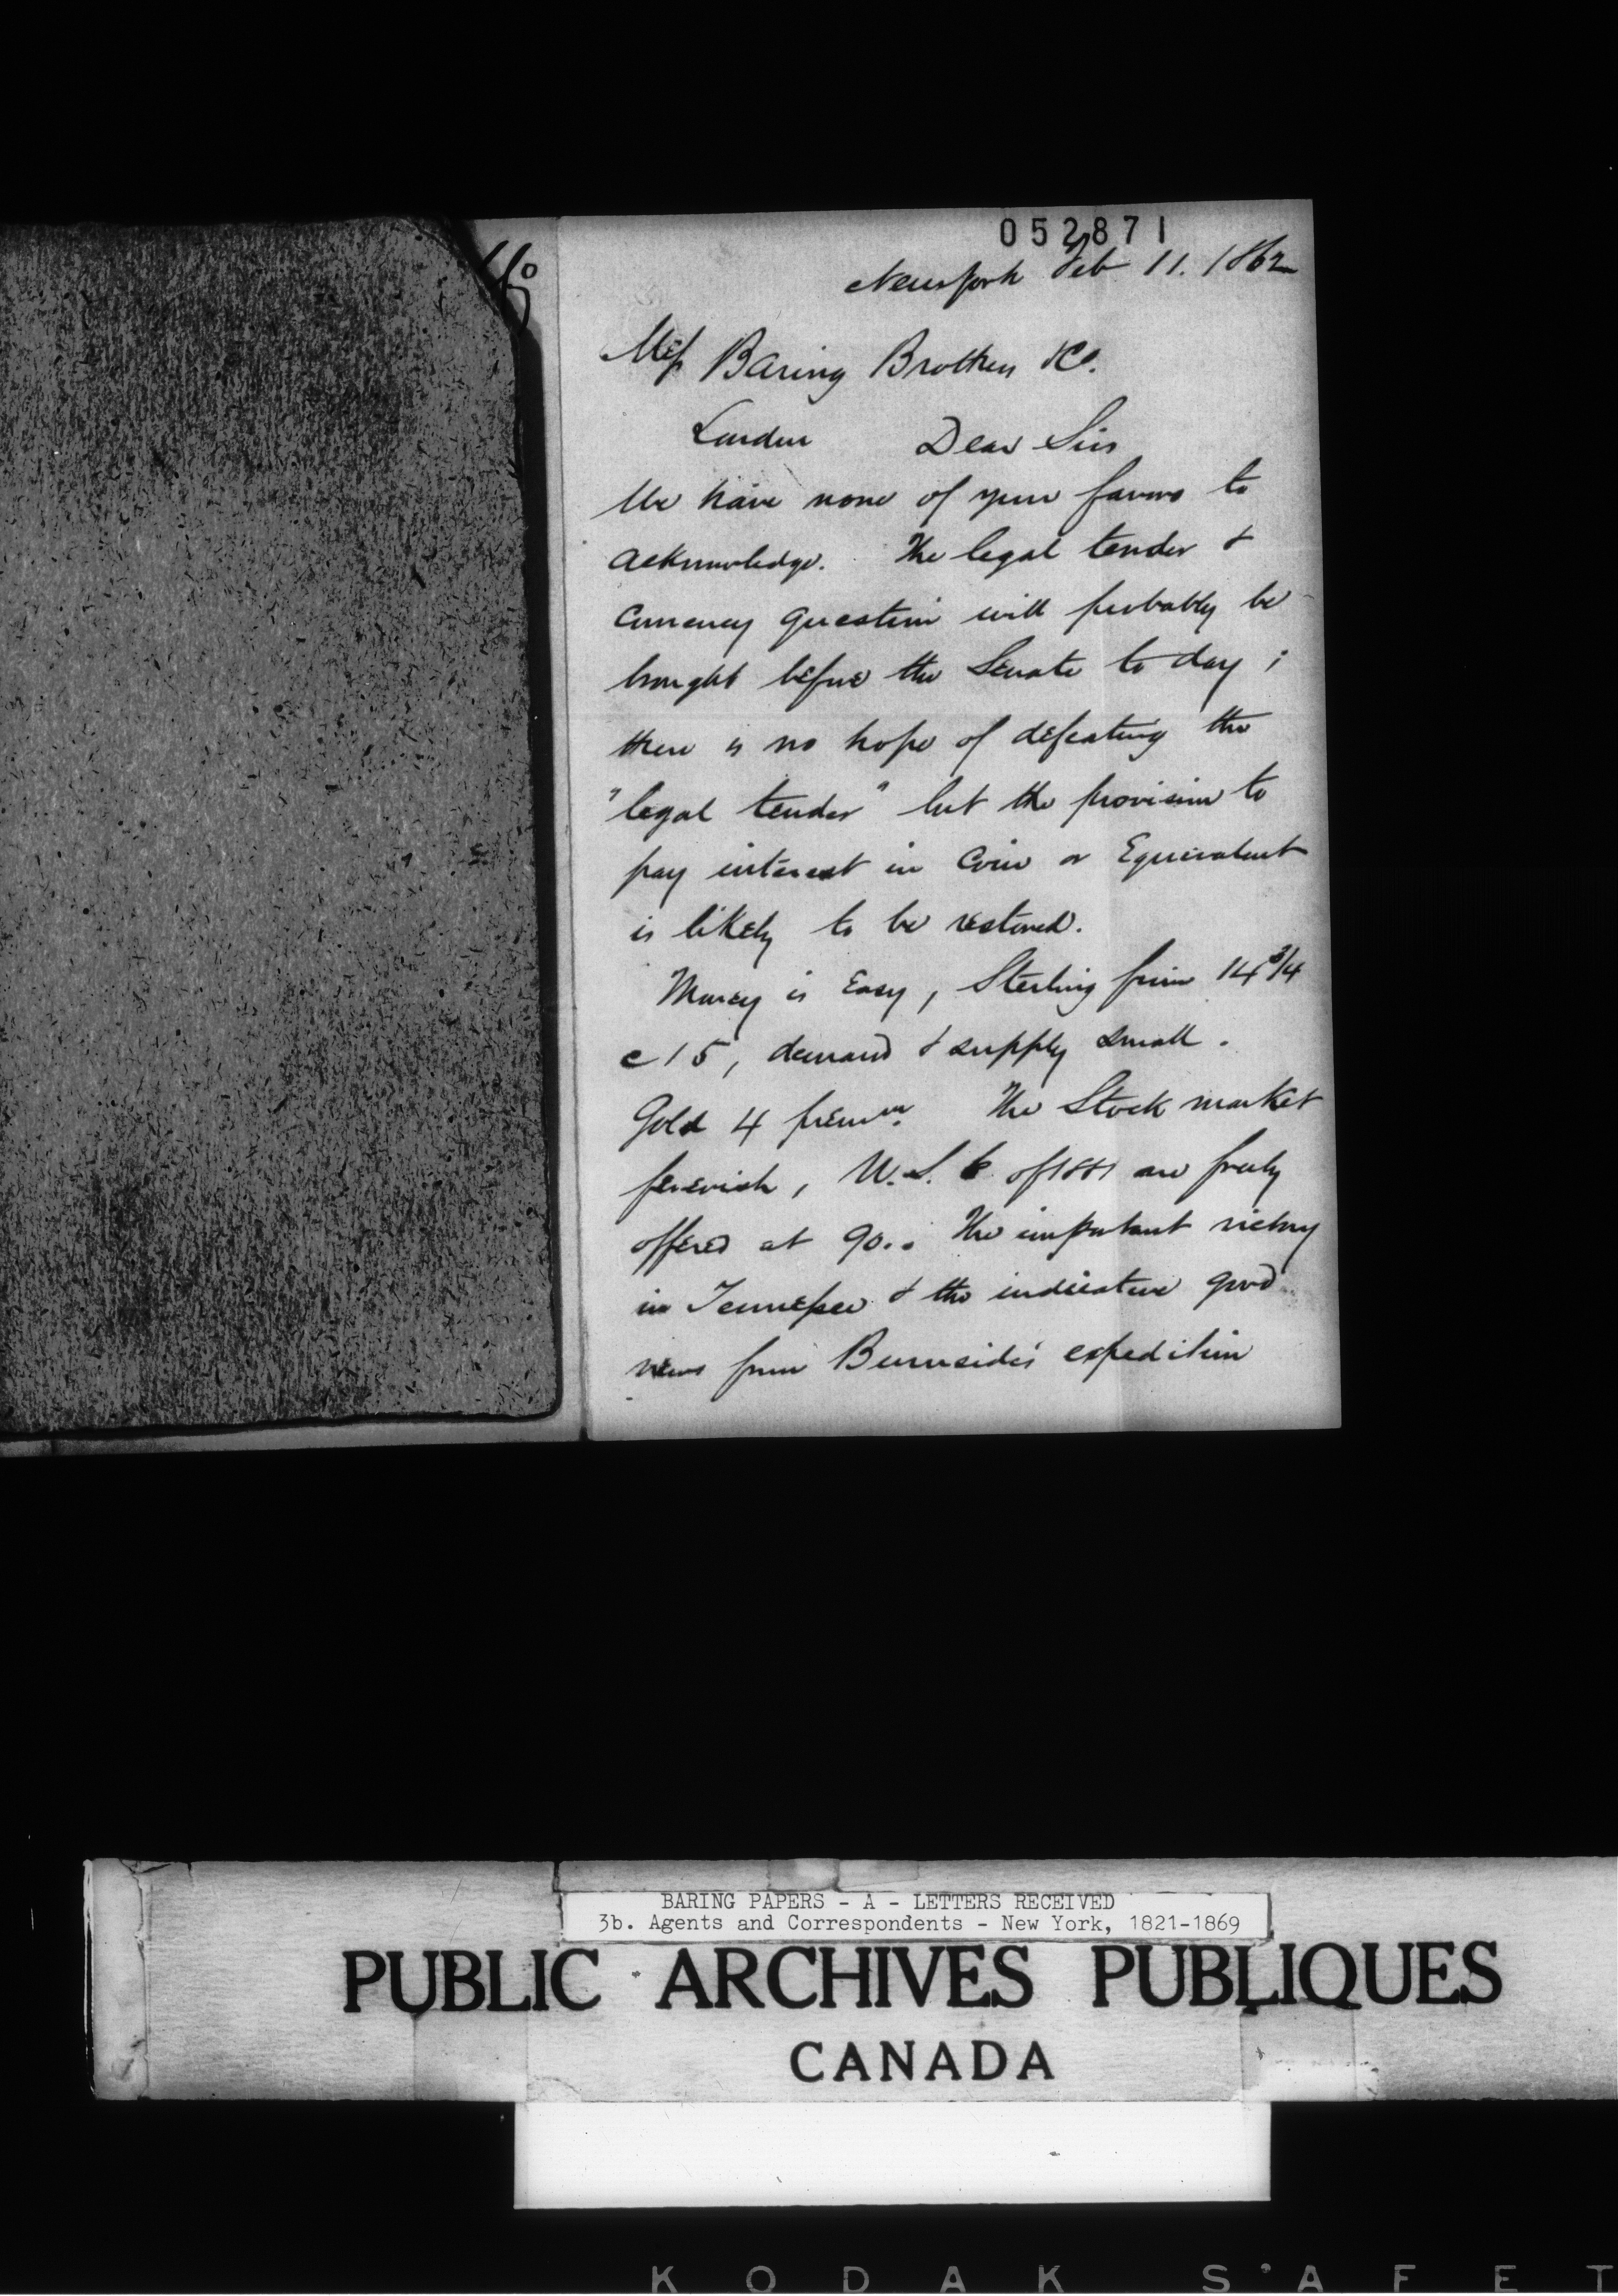 052871
New York Feb 11. 1862
Mess Baring Brothers &Co.
London Dear Sirs
We have none of your favors to
acknowledge. The legal tender &
Currency question will probably be
brought before the Senate to day ;
there is no hope of defeating the
"legal tender" but the provision to
pay interest in Coin or Equivalent
is likely to be restored.
Money is Easy, Sterling firm 14 3/4
@ 15, demand & supply small.
Gold 4 premm. The Stock market
feverish, U.S. 6 of 1881 are freely
offered at 90.. The important victory
in Tennessee & the indicative good
news from Burnside's expedition
BARING PAPERS - A - LETTERS RECEIVED
3b. Agents and Correspondents - New York, 1821-1869
PUBLIC ARCHIVES PUBLIQUES
CANADA
KODAK SAFET